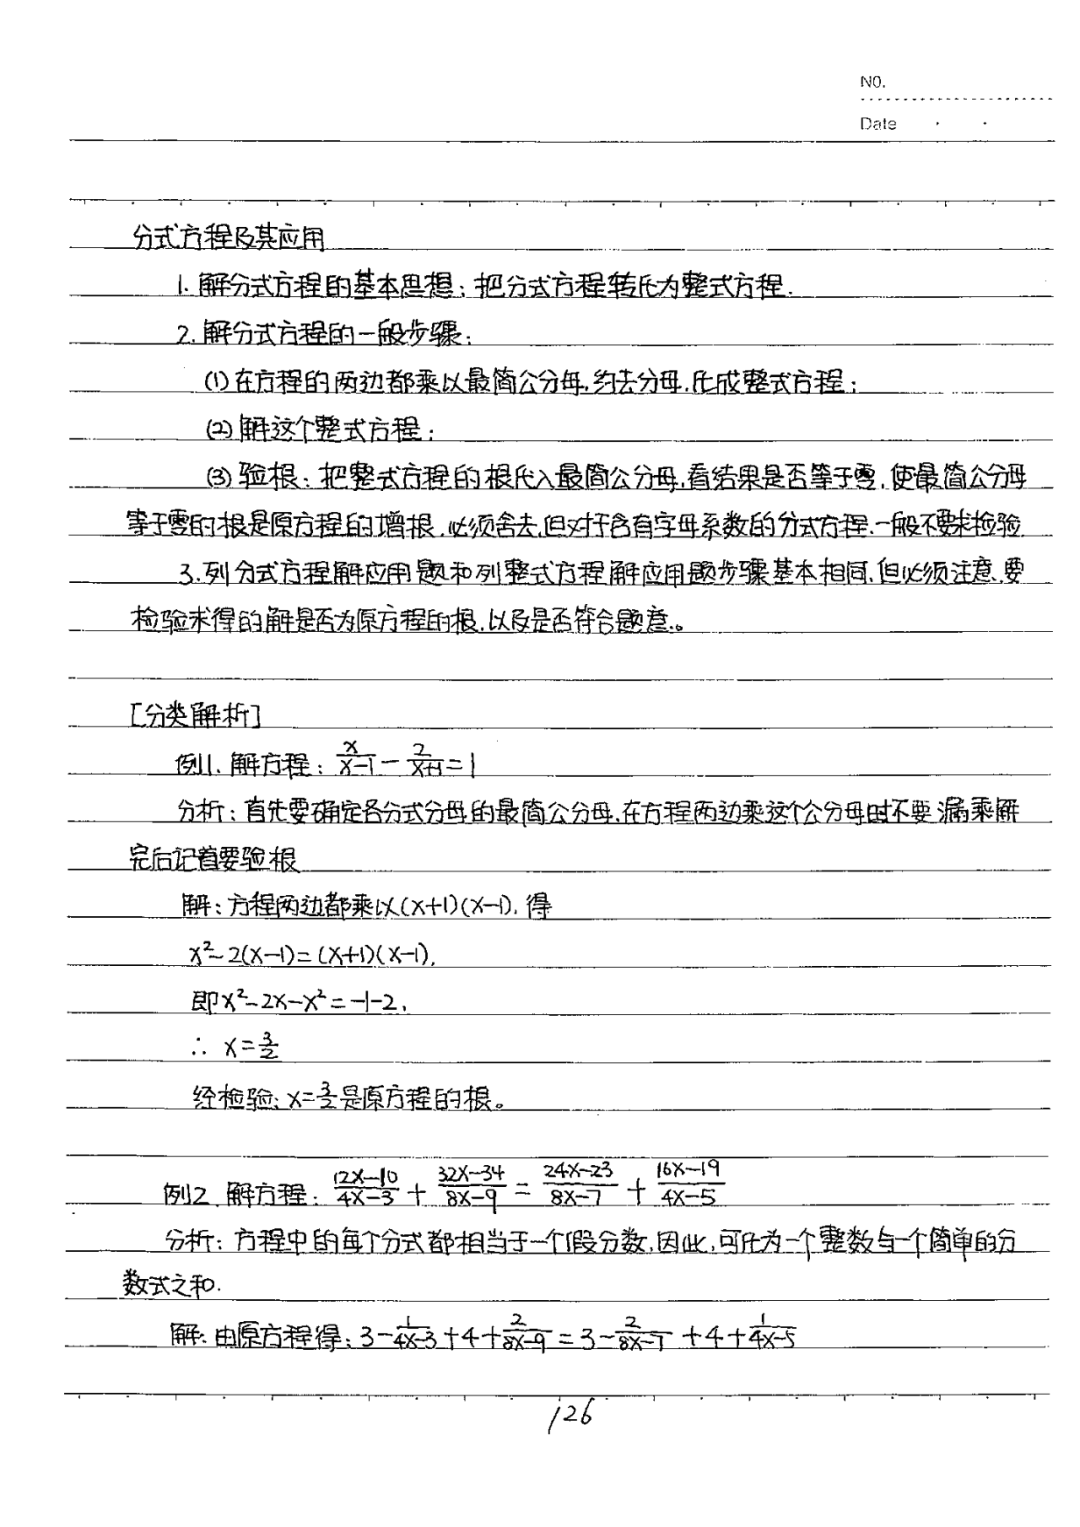 NO.
Date
分式方程及其应用
1.解分式方程的基本思想:把分式方程转化为整式方程.
2.解分式方程的一般步骤:
(1)在方程的两边都乘以最简公分母,约去分母,化成整式方程;
(2)解这个整式方程;
(3)验根:把整式方程的根代入最简公分母,看结果是否等于零,使最简公分母
等于零的根是原方程的增根,必须舍去,但对于含有字母系数的分式方程,一般不要求检验
3.列分式方程解应用题和列整式方程解应用题步骤基本相同,但必须注意,要
检验求得的解是否为原方程的根,以及是否符合题意.。
[分类解析]
例1.解方程:x/(x-1)-2/(x+1)=1
分析:首先要确定各分式分母的最简公分母,在方程两边乘这个公分母时不要漏乘解
完后记着要验根
解:方程两边都乘以(x+1)(x-1),得
x²-2(x-1)=(x+1)(x-1),
即x²-2x-x²=-1-2,
∴ x=3/2
经检验:x=3/2是原方程的根。
例2.解方程:(12x-10)/(4x-3)+(32x-34)/(8x-9)=(24x-23)/(8x-7)+(16x-19)/(4x-5)
分析:方程中的每个分式都相当于一个假分数,因此,可化为一个整数与一个简单的分
数式之和.
解:由原方程得:3-1/(4x-3)+4+2/(8x-9)=3-2/(8x-7)+4+1/(4x-5)
126